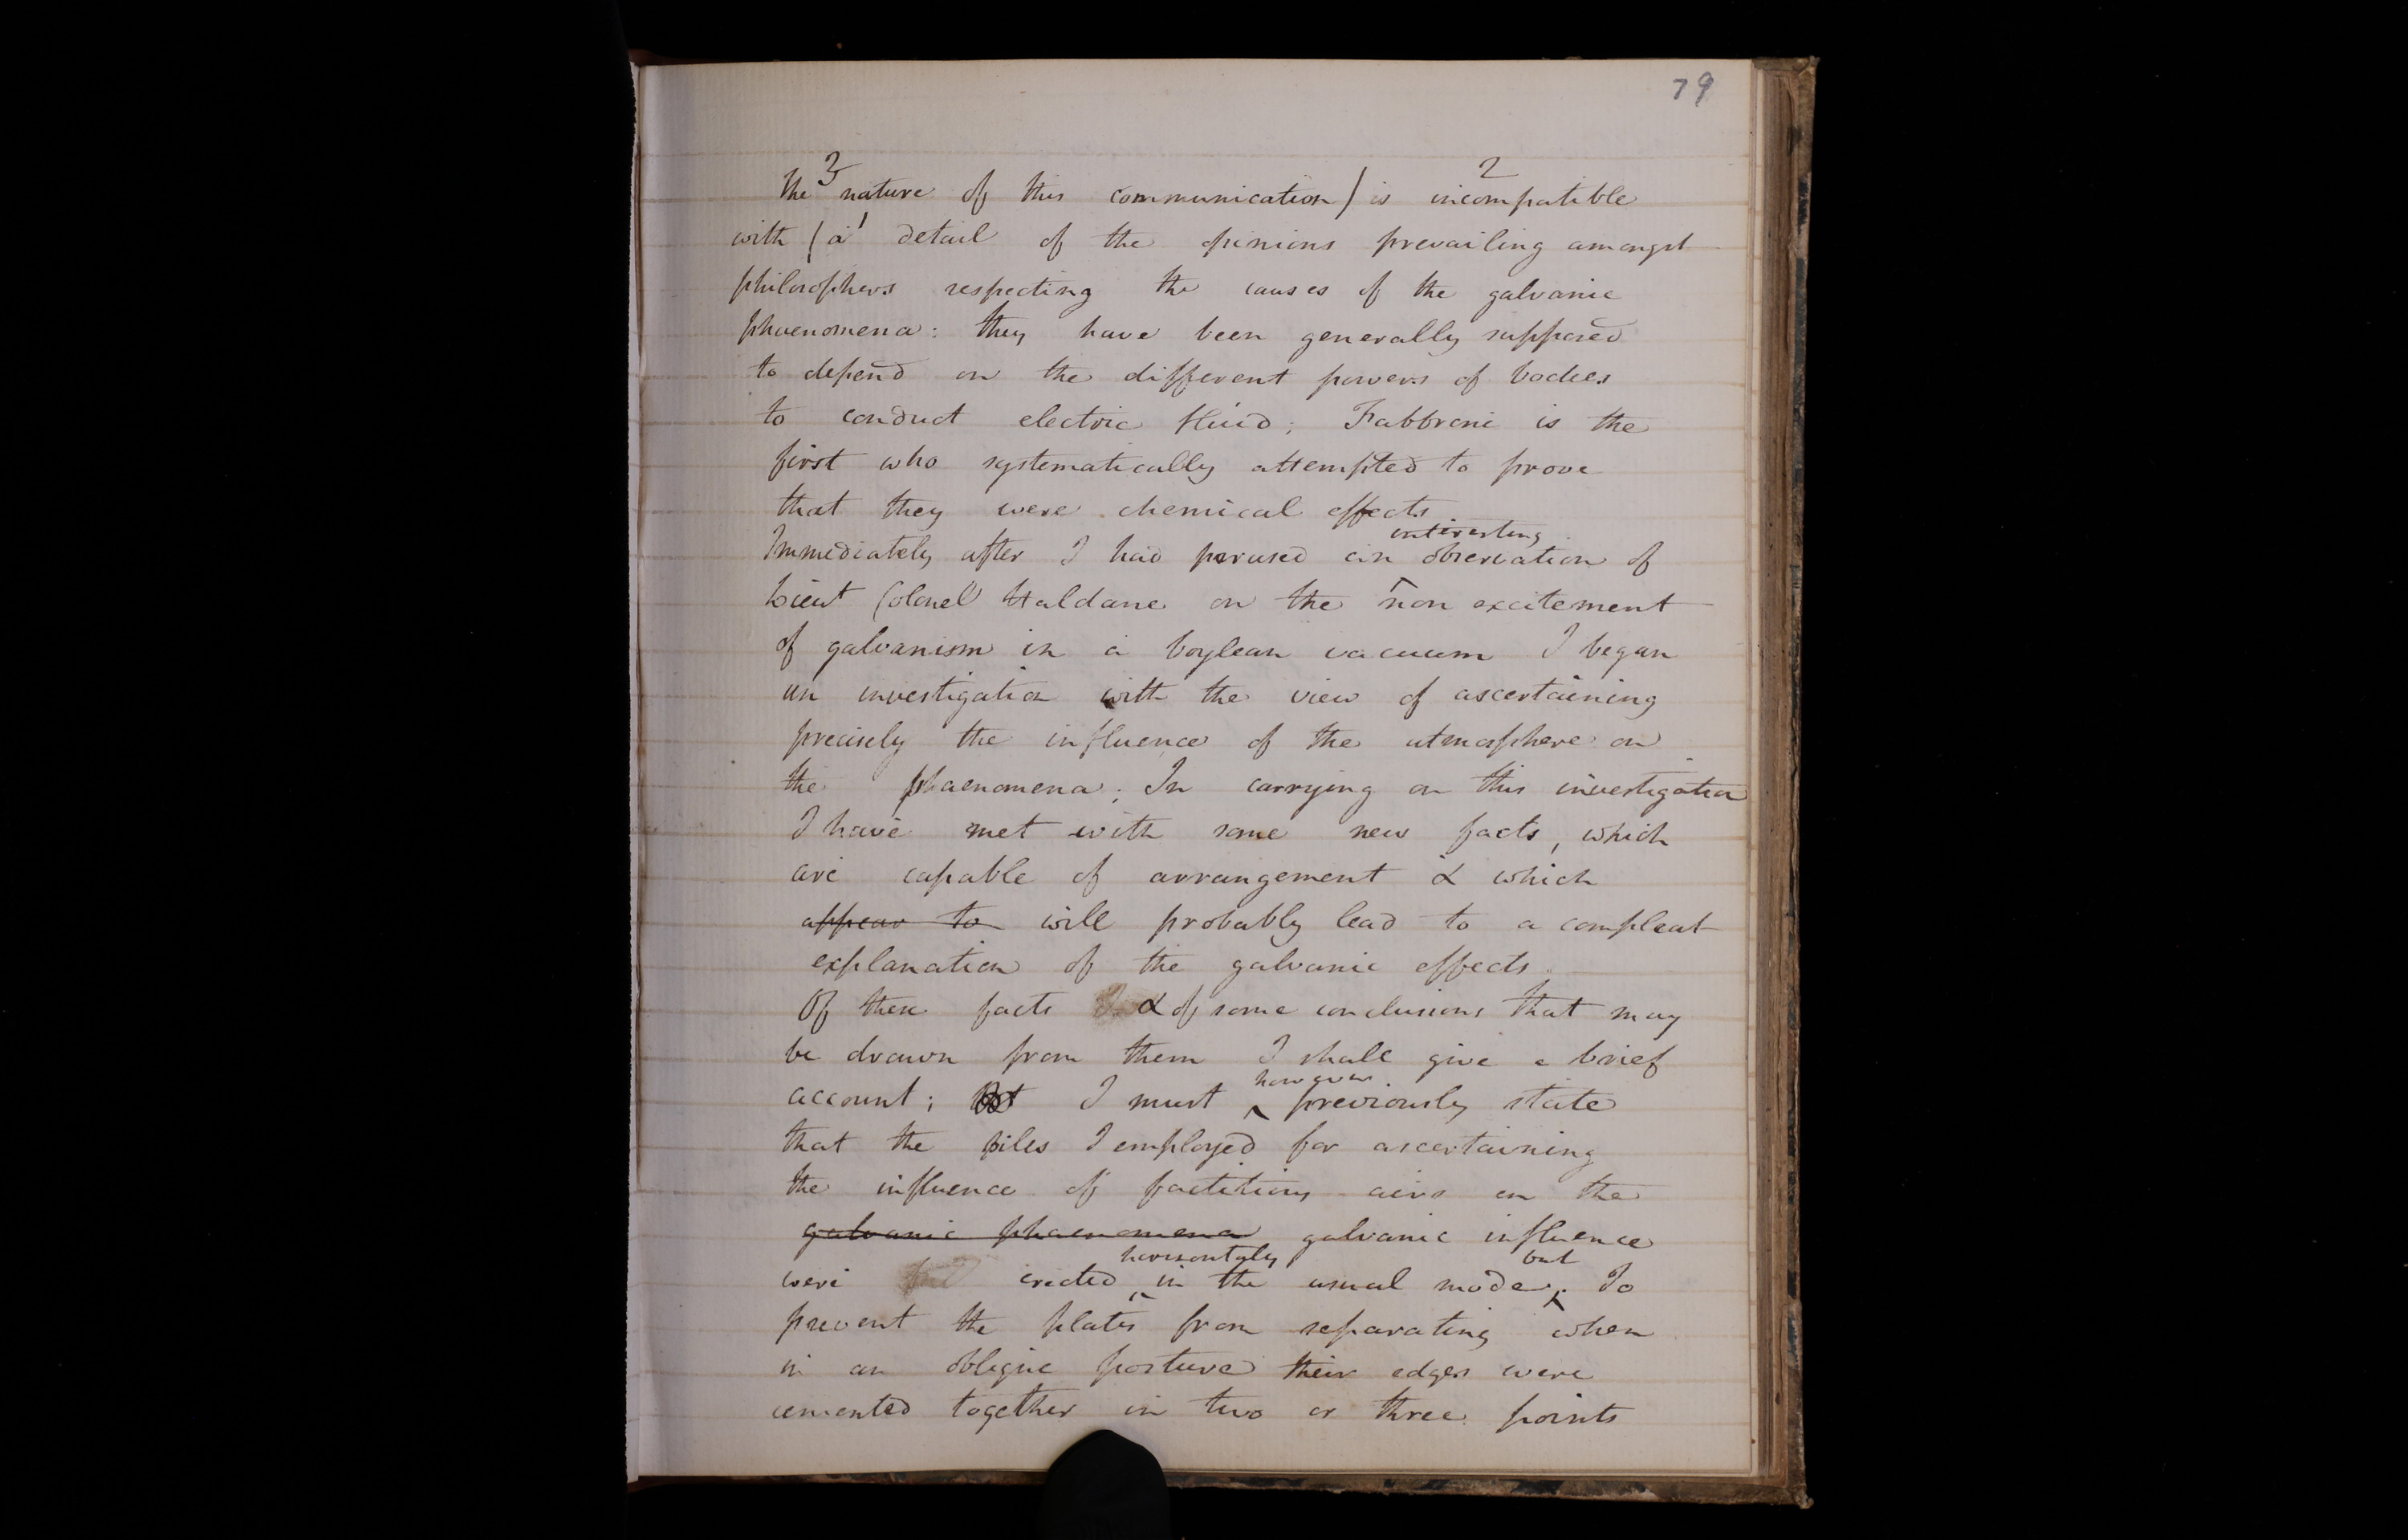 79
3 2
The nature of this communication / is incompatible
with / a 1 detail of the opinions prevailing amongst
philosophers respecting the causes of the galvanic
phaenomena: they have been generally supposed
to depend on the different powers of bodies
to conduct electric fluid; Fabbroni is the
first who systematically attempted to prove
that they were chemical effects
interesting
Immediately after I had perused an observation of
Lieut Colonel Haldane on the non excitement
of galvanism in a boylean vacuum I began
an investigation with the view of ascertaining
precisely the influence of the atmosphere on
the phaenomena; In carrying on this investigation
I have met with some new facts, which
are capable of arrangement & which
appear to will probably lead to a compleat
explanation of the galvanic effects.
Of these facts & of some conclusions that may
be drawn from them I shall give a brief
however
account; But I must ^ previously state
that the piles I employed for ascertaining
the influence of factitious airs on the
galvanic phaenomena galvanic influence
horizontaly but
were erected ^ in the usual mode ^. To
prevent the plates from separating when
in an oblique posture their edges were
cemented together in two or three points